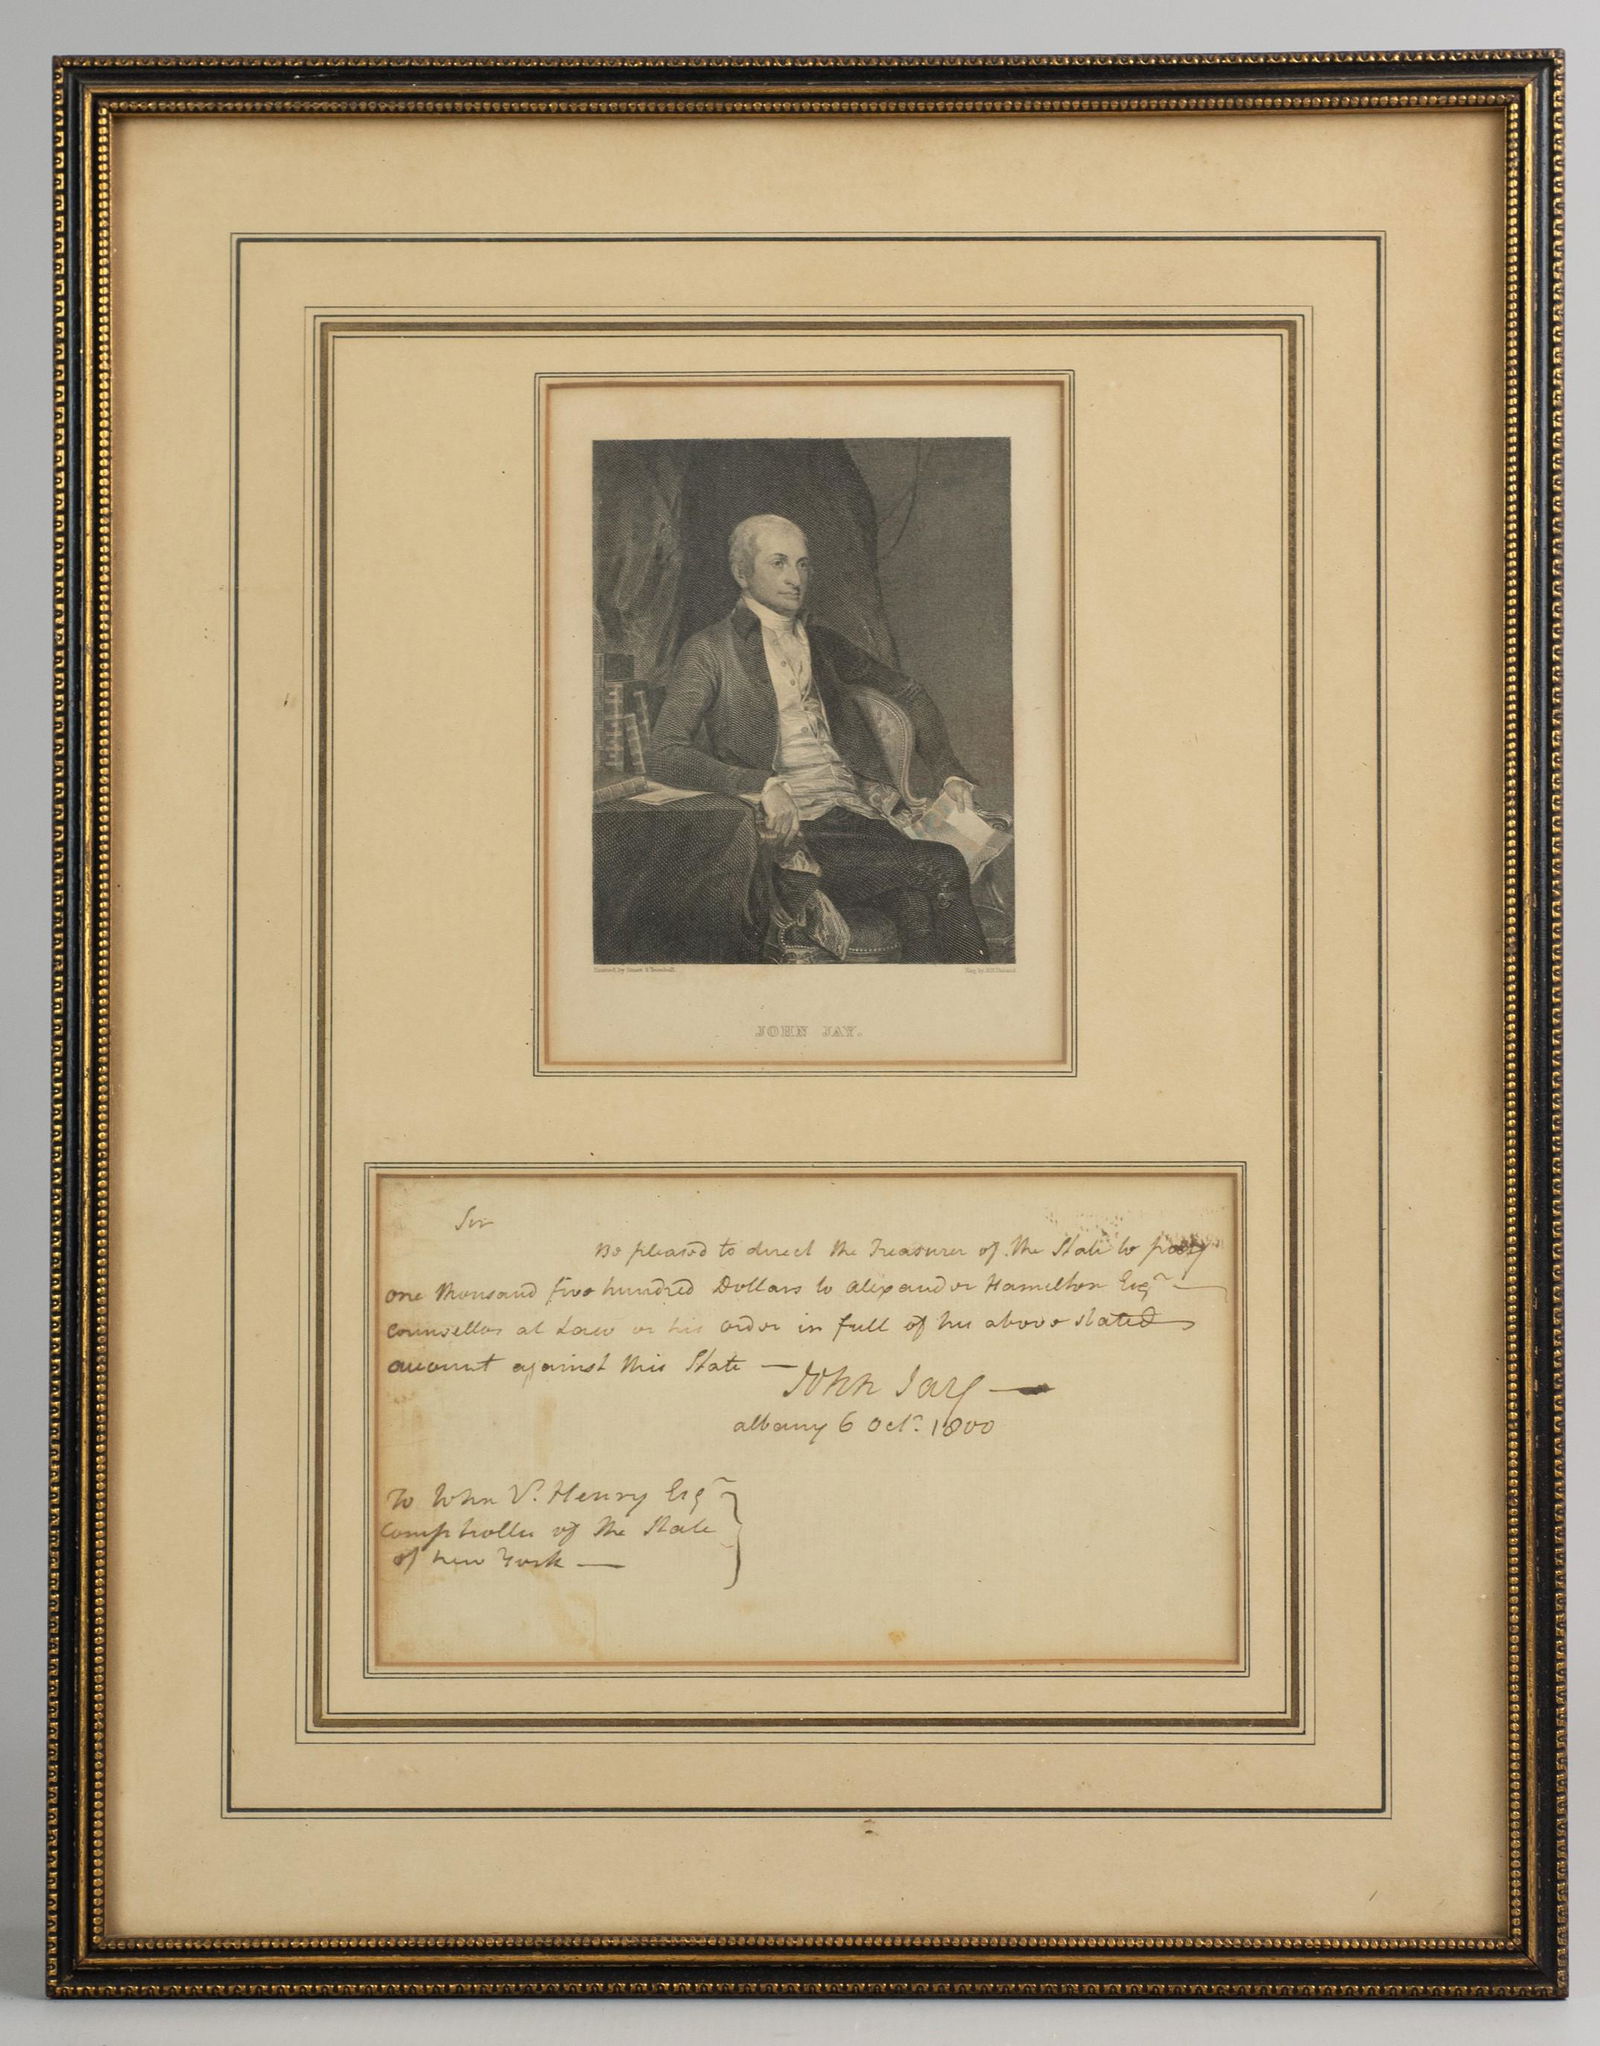 Painted by Stuart & Trumbull.
Eng. by A.B. Durand
JOHN JAY.
Sir
Be pleased to direct the Treasurer of the State to pay
one thousand five hundred Dollars to Alexander Hamilton Esqr —
Counsellor at Law or his order in full of his above stated
account against this State —
John Jay —
Albany 6 Octr. 1800
To John V. Henry Esqr
Comptroller of the State
of New York —